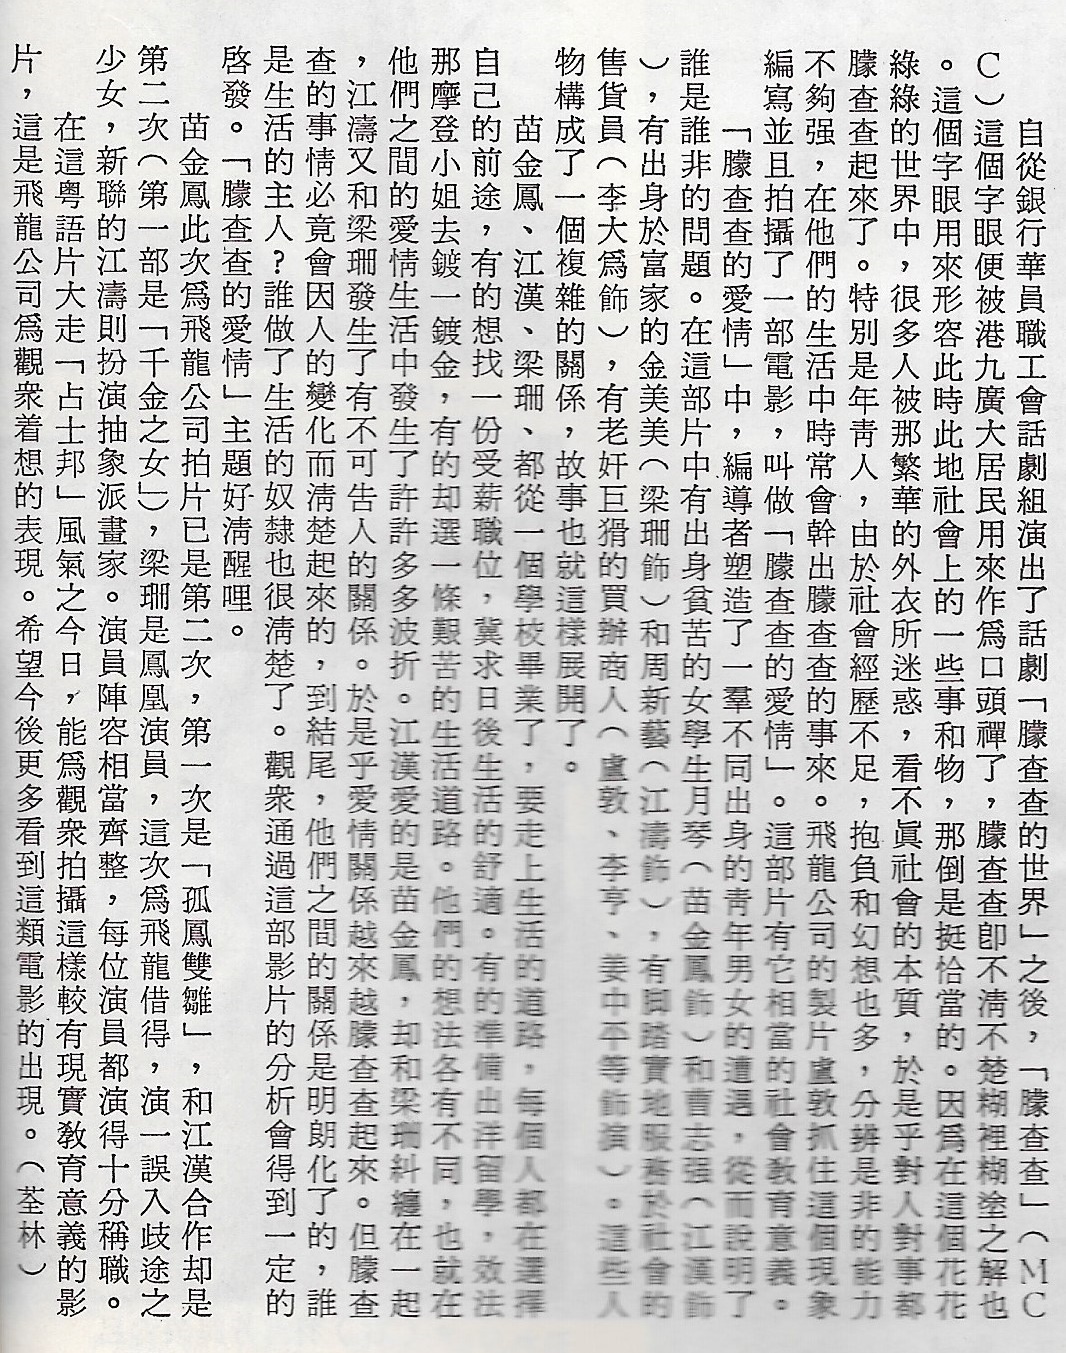 自從銀行華員職工會話劇組演出了話劇「朦查查的世界」之後，「朦查查」（ＭＣ
Ｃ）這個字眼便被港九廣大居民用來作爲口頭禪了，朦查查卽不淸不楚糊裡糊塗之解也
。這個字眼用來形容此時此地社會上的一些事和物，那倒是挺恰當的。因爲在這個花花
綠綠的世界中，很多人被那繁華的外衣所迷惑，看不眞社會的本質，於是乎對人對事都
朦查查起來了。特別是年靑人，由於社會經歷不足，抱負和幻想也多，分辨是非的能力
不夠强，在他們的生活中時常會幹出朦查查的事來。飛龍公司的製片盧敦抓住這個現象
編寫並且拍攝了一部電影，叫做「朦查查的愛情」。這部片有它相當的社會敎育意義。
「朦查查的愛情」中，編導者塑造了一羣不同出身的靑年男女的遭遇，從而說明了
誰是誰非的問題。在這部片中有出身貧苦的女學生月琴（苗金鳳飾）和曹志强（江漢飾
），有出身於富家的金美美（梁珊飾）和周新藝（江濤飾），有脚踏實地服務於社會的
售貨員（李大爲飾），有老奸巨猾的買辦商人（盧敦、李亨、姜中平等飾演）。這些人
物構成了一個複雜的關係，故事也就這樣展開了。
苗金鳳、江漢、梁珊、都從一個學校畢業了，要走上生活的道路，每個人都在選擇
自己的前途，有的想找一份受薪職位，冀求日後生活的舒適。有的準備出洋留學，效法
那摩登小姐去鍍一鍍金，有的却選一條艱苦的生活道路。他們的想法各有不同，也就在
他們之間的愛情生活中發生了許許多多波折。江漢愛的是苗金鳳，却和梁珊糾纏在一起
，江濤又和梁珊發生了有不可告人的關係。於是乎愛情關係越來越朦查查起來。但朦查
查的事情必竟會因人的變化而淸楚起來的，到結尾，他們之間的關係是明朗化了的，誰
是生活的主人？誰做了生活的奴隸也很淸楚了。觀衆通過這部影片的分析會得到一定的
啓發。「朦查查的愛情」主題好淸醒哩。
苗金鳳此次爲飛龍公司拍片已是第二次，第一次是「孤鳳雙雛」，和江漢合作却是
第二次（第一部是「千金之女」），梁珊是鳳凰演員，這次爲飛龍借得，演一誤入歧途之
少女，新聯的江濤則扮演抽象派畫家。演員陣容相當齊整，每位演員都演得十分稱職。
在這粤語片大走「占士邦」風氣之今日，能爲觀衆拍攝這樣較有現實敎育意義的影
片，這是飛龍公司爲觀衆着想的表現。希望今後更多看到這類電影的出現。（荃林）